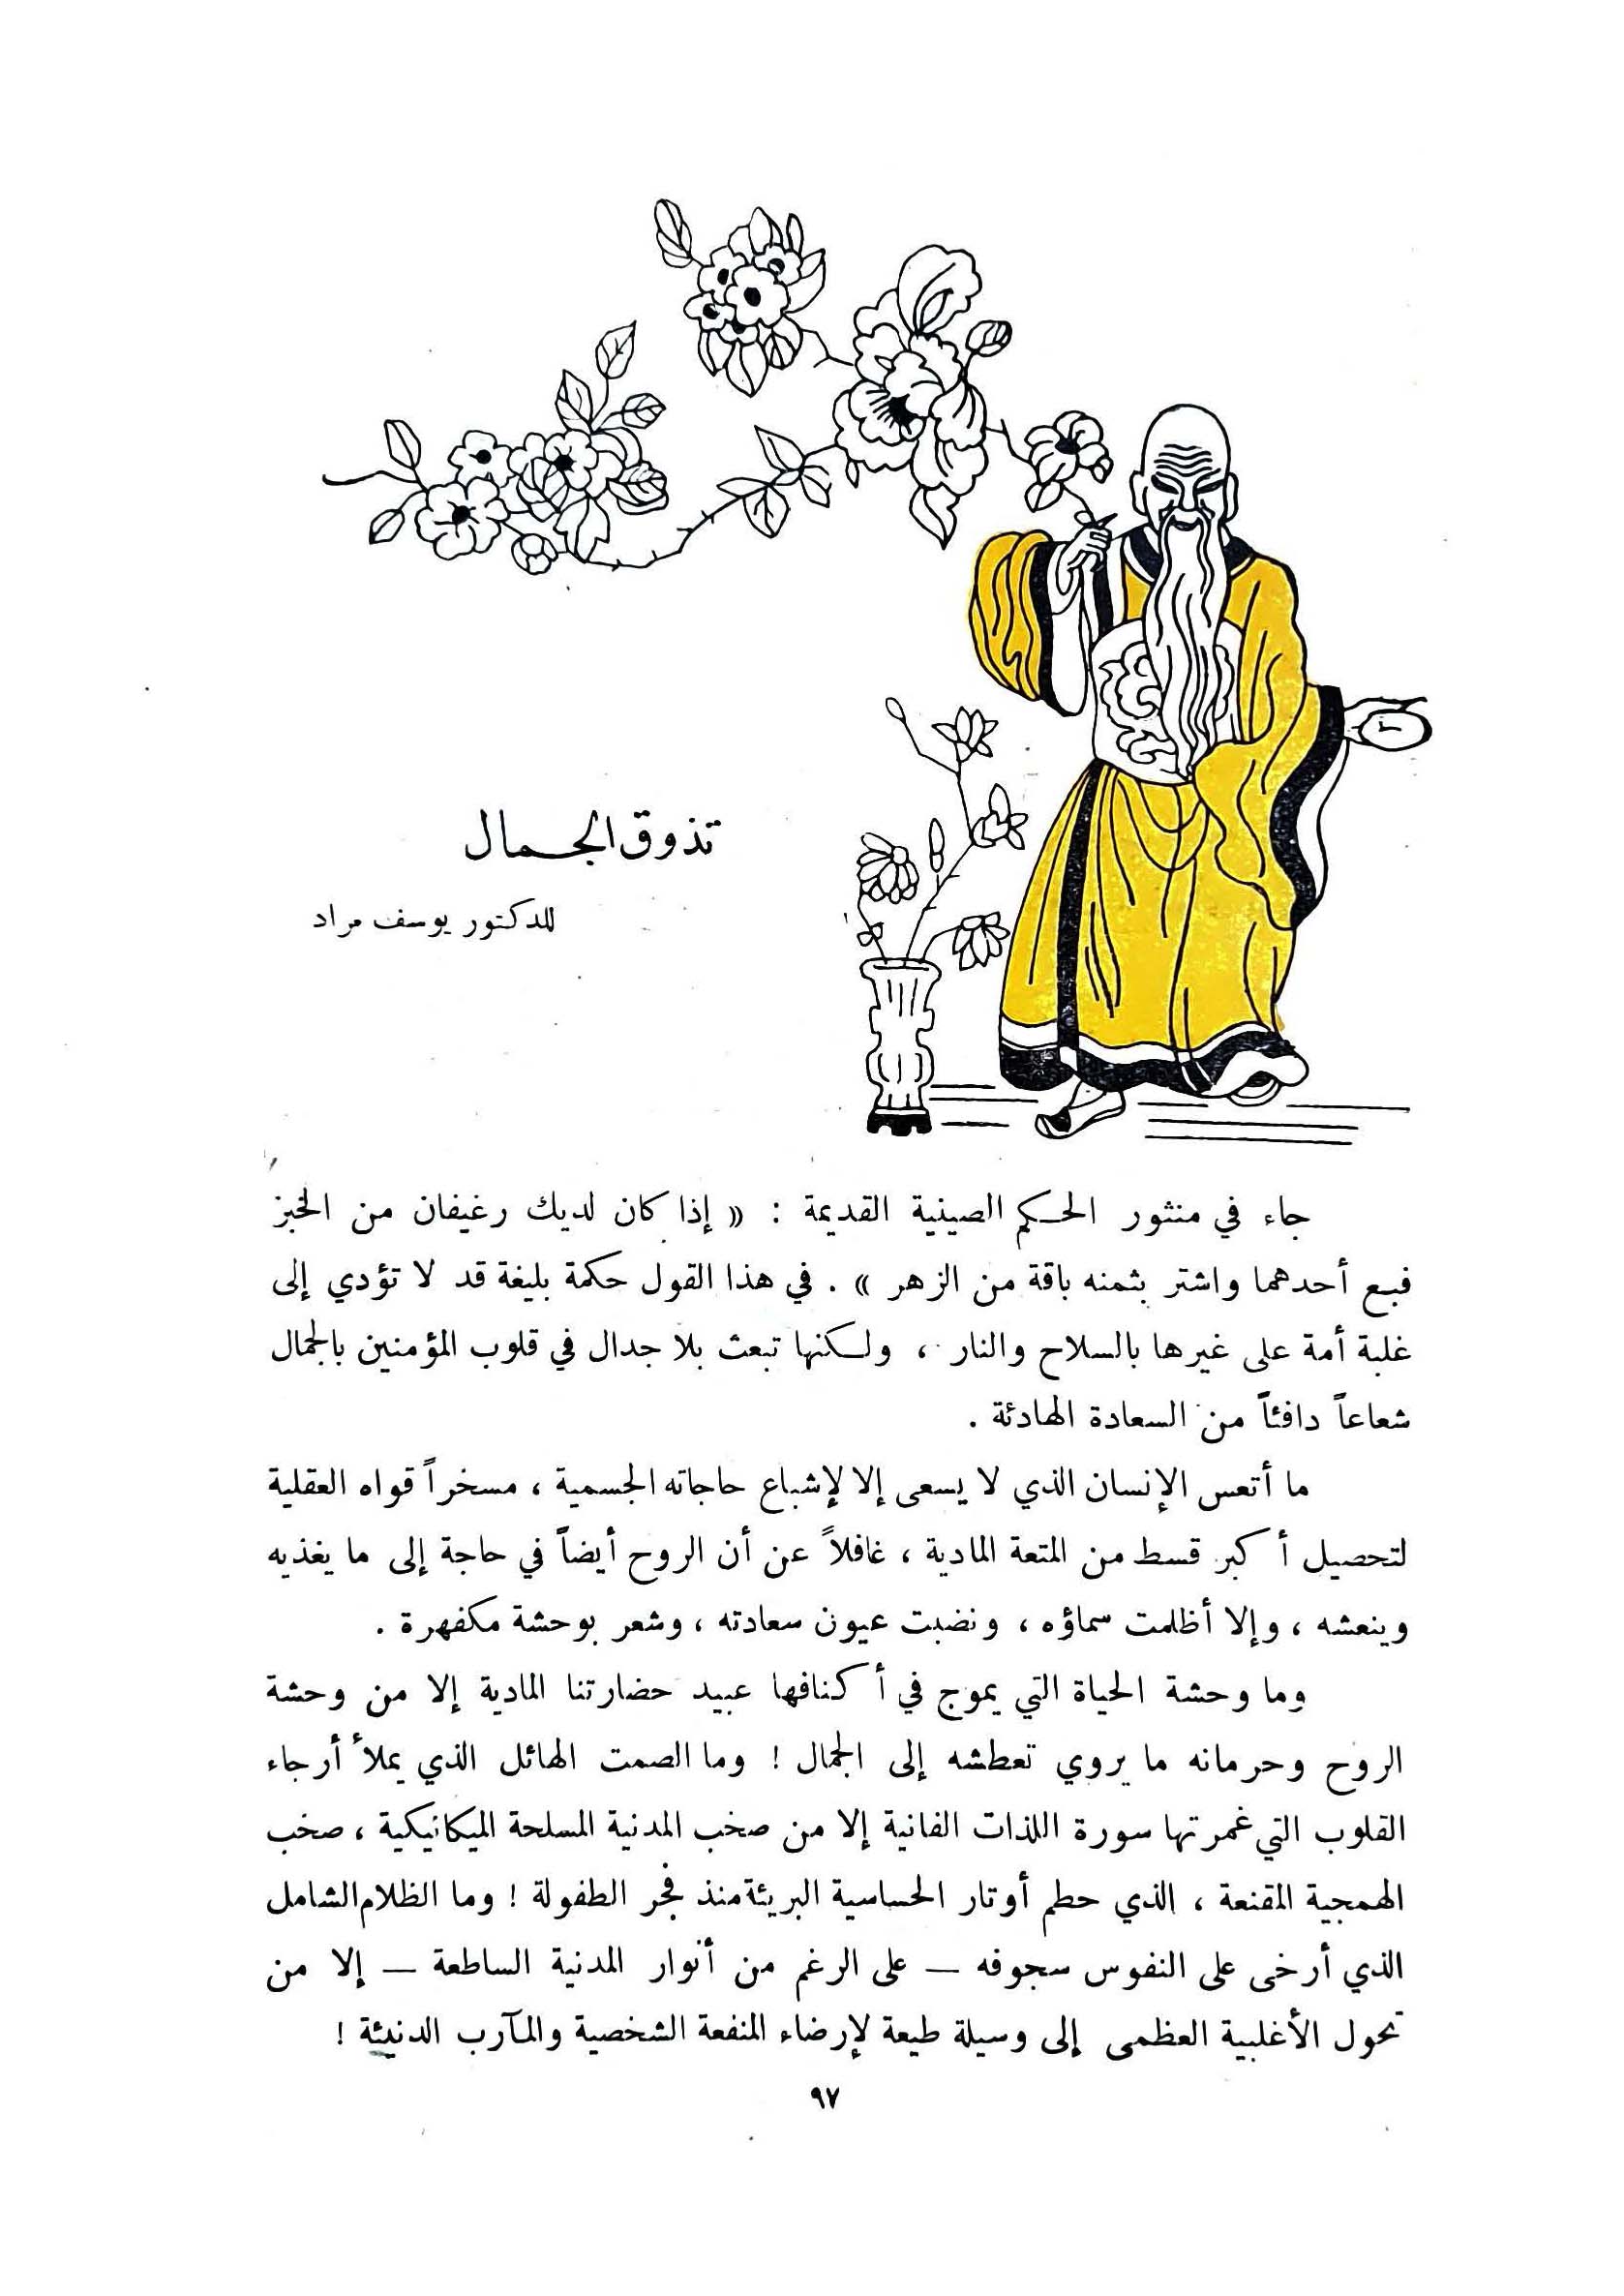 تذوق الجمال
للدكتور يوسف مراد
جاء في منثور الحكم الصينية القديمة : « إذا كان لديك رغيفان من الخبز
فبع أحدهما واشتر بثمنه باقة من الزهر » . في هذا القول حكمة بليغة قد لا تؤدي إلى
غلبة أمة على غيرها بالسلاح والنار ، ولكنها تبعث بلا جدال في قلوب المؤمنين بالجمال
شعاعاً دافئاً من السعادة الهادئة .
ما أتعس الإنسان الذي لا يسعى إلا لإشباع حاجاته الجسمية ، مسخراً قواه العقلية
لتحصيل أكبر قسط من المتعة المادية ، غافلاً عن أن الروح أيضاً في حاجة إلى ما يغذيه
وينعشه ، وإلا أظلمت سماؤه ، ونضبت عيون سعادته ، وشعر بوحشة مكفهرة .
وما وحشة الحياة التي يموج في أكنافها عبيد حضارتنا المادية إلا من وحشة
الروح وحرمانه ما يروي تعطشه إلى الجمال ! وما الصمت الهائل الذي يملأ أرجاء
القلوب التي غمرتها سورة اللذات الفانية إلا من صخب المدنية المسلحة الميكانيكية ، صخب
الهمجية المقنعة ، الذي حطم أوتار الحساسية البريئة منذ فجر الطفولة ! وما الظلام الشامل
الذي أرخى على النفوس سجوفه — على الرغم من أنوار المدنية الساطعة — إلا من
تحول الأغلبية العظمى إلى وسيلة طيعة لإرضاء المنفعة الشخصية والمآرب الدنيئة !
٩٧